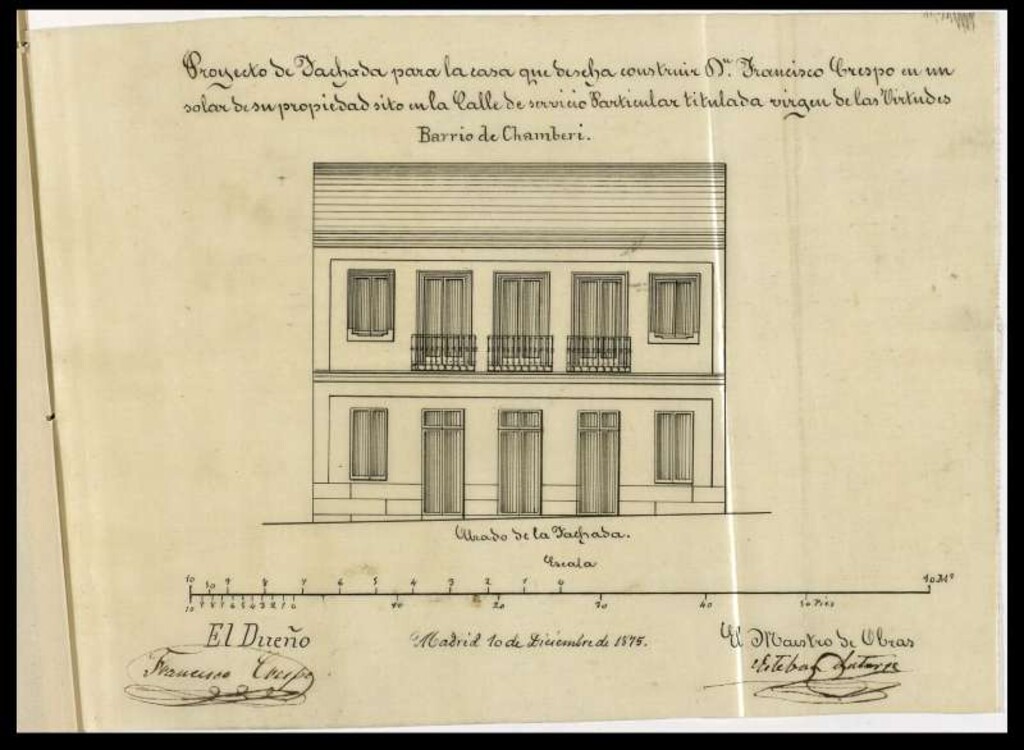 Proyecto de Fachada para la casa que deseha construir Dn. Francisco Crespo en un
solar de su propiedad sito en la Calle de servicio Particular titulada virgen de las Virtudes
Barrio de Chamberi.
Alzado de la Fachada.
Escala
10 9 8 7 6 5 4 3 2 1 0 10 Ms
10 9 8 7 6 5 4 3 2 1 0 10 20 30 40 50 Pies
El Dueño
Madrid 10 de Diciembre de 1875.
El Maestro de Obras
Francisco Crespo
Esteban